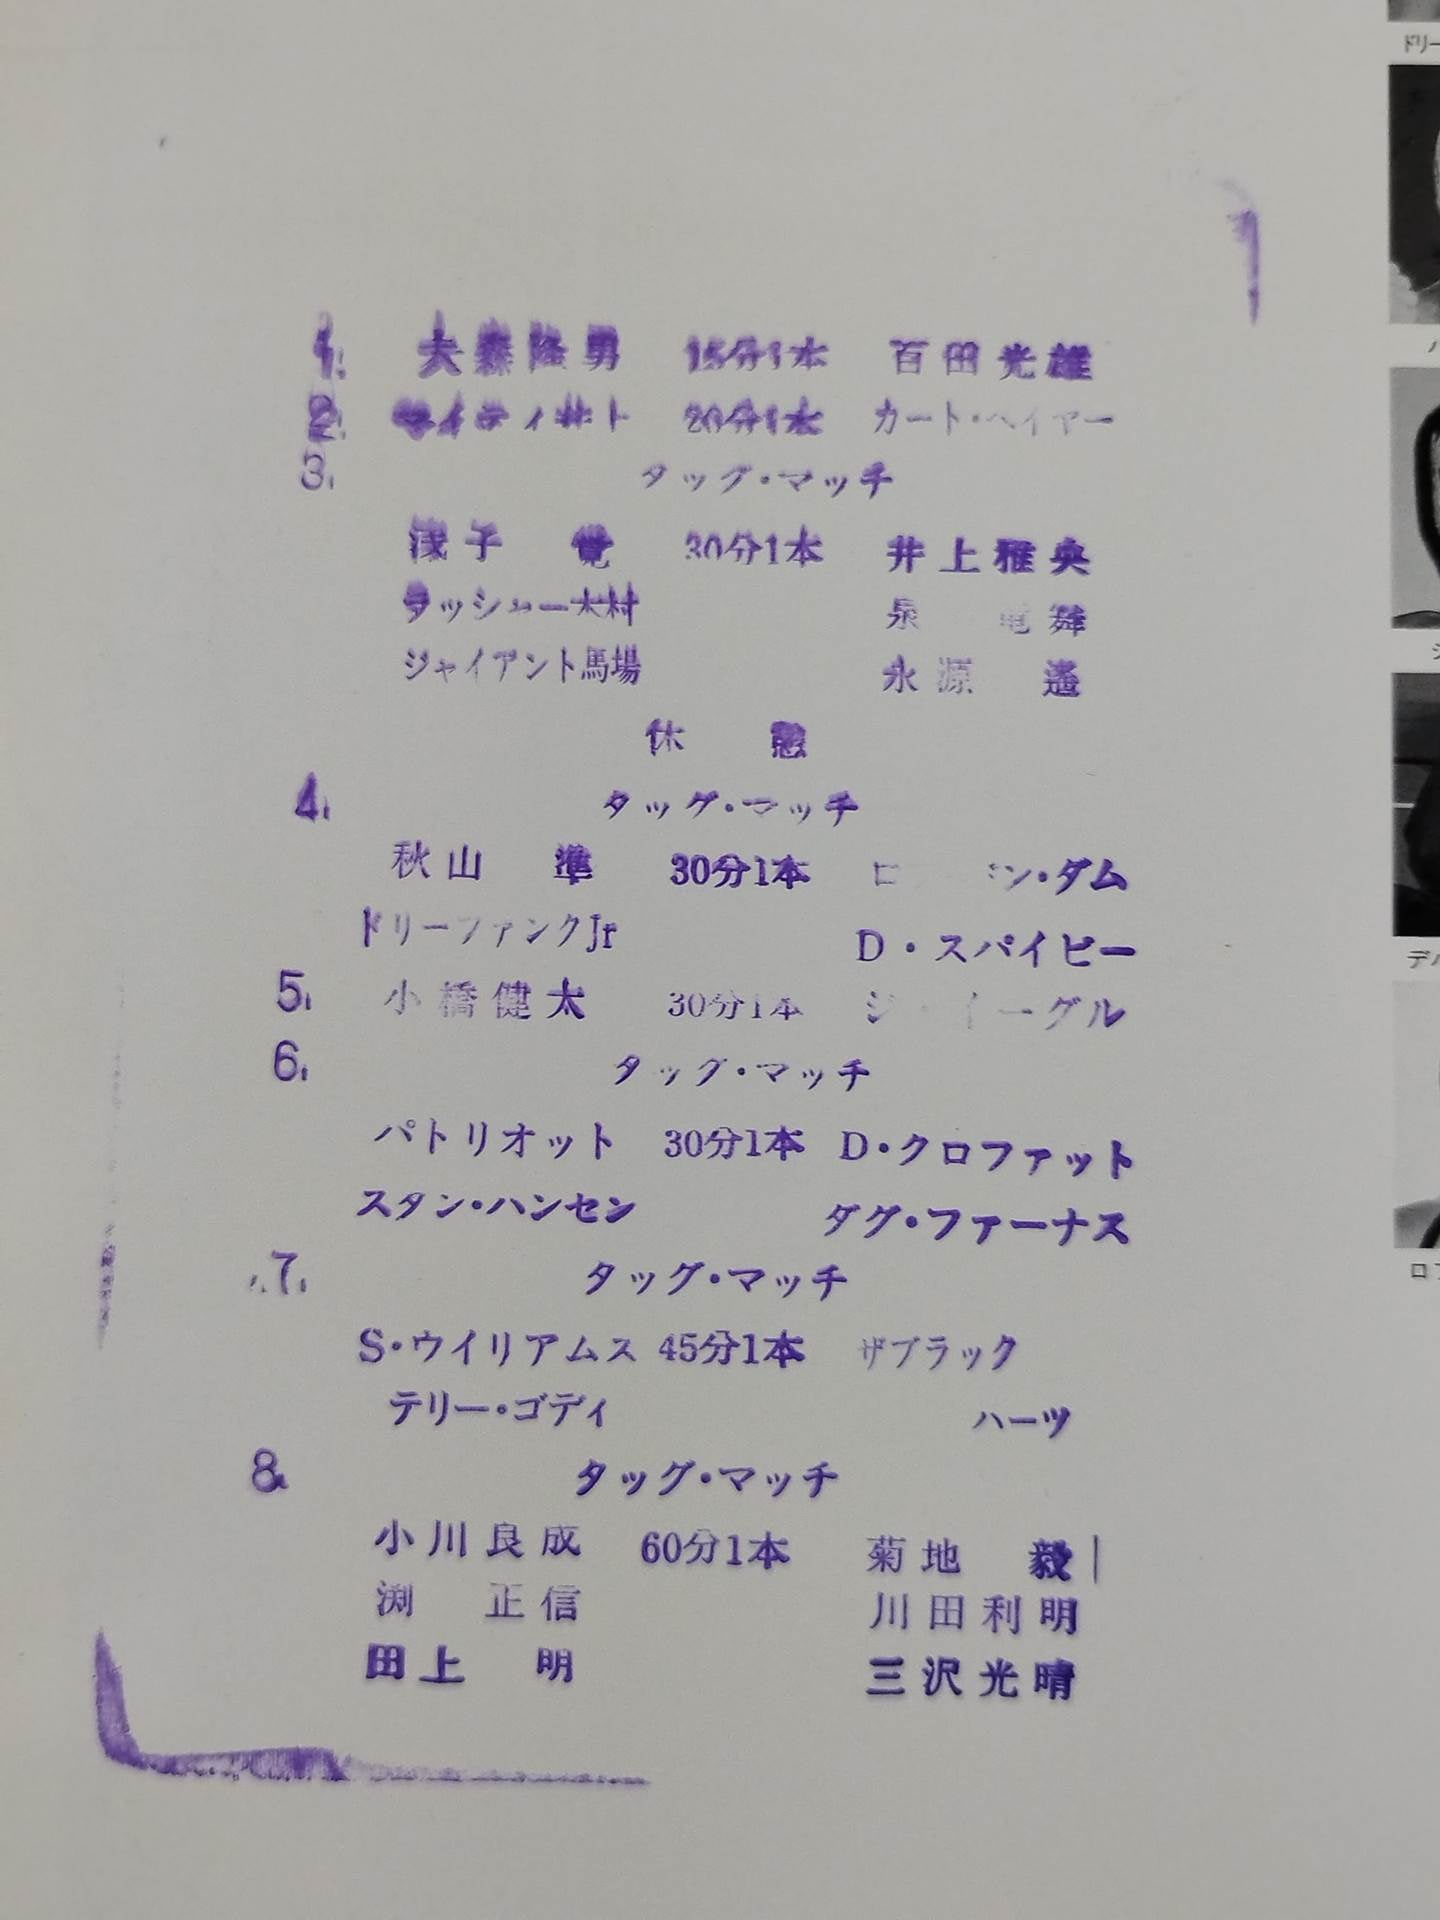 1. 大森隆男 15分1本 百田光雄
2. マイティ井上 20分1本 カート・ヘイヤー
3. タッグ・マッチ
浅子 覚 30分1本 井上雅央
ラッシャー木村 泉 竜舞
ジャイアント馬場 永源 遙
休 憩
4. タッグ・マッチ
秋山 準 30分1本 ン・ダム
ドリーファンクJr D・スパイビー
5. 小橋健太 30分1本 イーグル
6. タッグ・マッチ
パトリオット 30分1本 D・クロファット
スタン・ハンセン ダグ・ファーナス
7. タッグ・マッチ
S・ウイリアムス 45分1本 ザブラック
テリー・ゴディ ハーツ
8. タッグ・マッチ
小川良成 60分1本 菊地 毅
渕 正信 川田利明
田上 明 三沢光晴
ドリー
デバ
ロブ